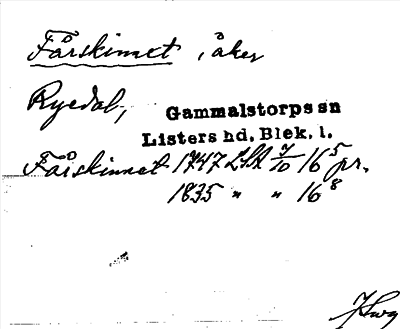 Fårskinnet, åker
Ryedal,
Gammalstorps sn
Listers hd, Blek. l.
Fårskinnet 1747 LSA 7/10 16⁵ pr.
1835 " " 16⁸